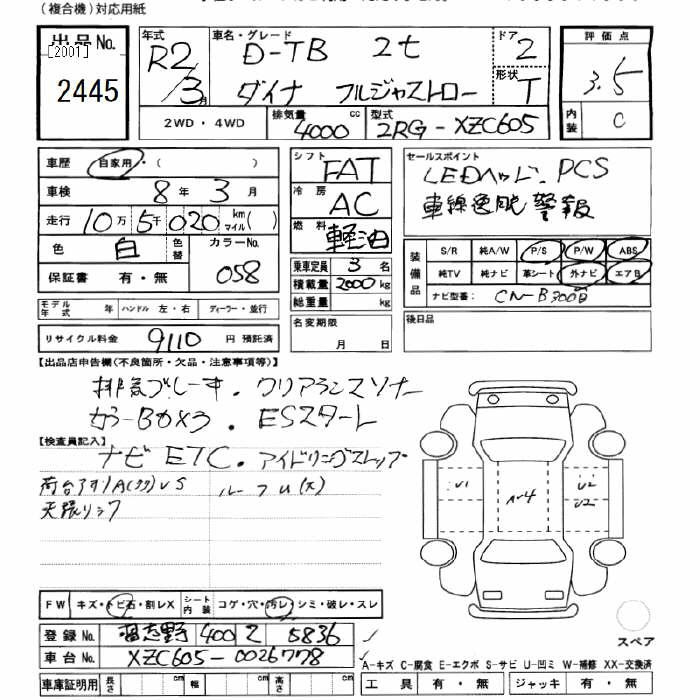 (複合機)対応用紙
出品No. 年式 車名・グレード ドア 評価点
[2001]
2445
R2/3月 D-TB 2t 2
ダイナ フルジャストロー 形状 T 3.5
2WD・4WD 排気量 4000 cc 型式 2RG-XZC605 内装 C
車歴 自家用・( )
車検 8年 3月
走行 10万 5千 020 km マイル( )
色 白 色替 カラーNo. 058
保証書 有・無
モデル年式 年 ハンドル 左・右 ディーラー・並行
リサイクル料金 9110 円 預託済
シフト FAT
冷房 AC
燃料 軽油
乗車定員 3 名
積載量 2000 kg
総重量 kg
名変期限
月 日
セールスポイント
LEDヘッド、PCS
車線逸脱警報
装備品 S/R 純A/W P/S P/W ABS
純TV 純ナビ 革シート 外ナビ エアB
ナビ型番: CN-B300B
後日品
【出品店申告欄(不良箇所・欠品・注意事項等)】
排気ブレーキ. クリアランスソナー
カラーBカメラ. ESスタート
【検査員記入】
ナビ ETC. アイドリングストップ
荷台アオリA(多数)US ルーフU(大)
天張りシワ
U1 U2
U2
FW キズ・トビ石・割レX シート内装 コゲ・穴・汚レ・シミ・破レ・スレ
登録No. 習志野 400 Z 5836
車台No. XZC605-0026778
車庫証明用 長さ cm 幅 cm 高さ cm
スペア
A-キズ C-腐食 E-エクボ S-サビ U-凹ミ W-補修 XX-交換済
工具 有・無 ジャッキ 有・無